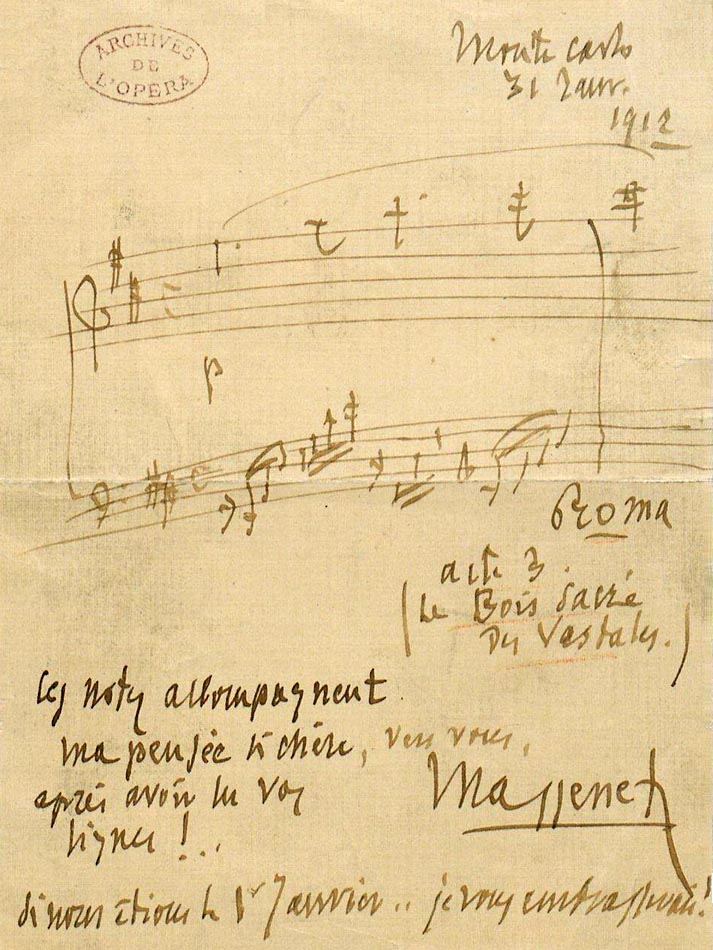 ARCHIVES
DE
L'OPERA
Monte Carlo
31 Janv.
1912
p
Roma
acte 3.
(Le Bois Sacré
Des Vestales.)
Ces notes accompagnent
ma pensée si chère, vers vous,
après avoir lu vos
lignes !..
Massenet
si nous étions le 1er Janvier.. je vous embrasserais!